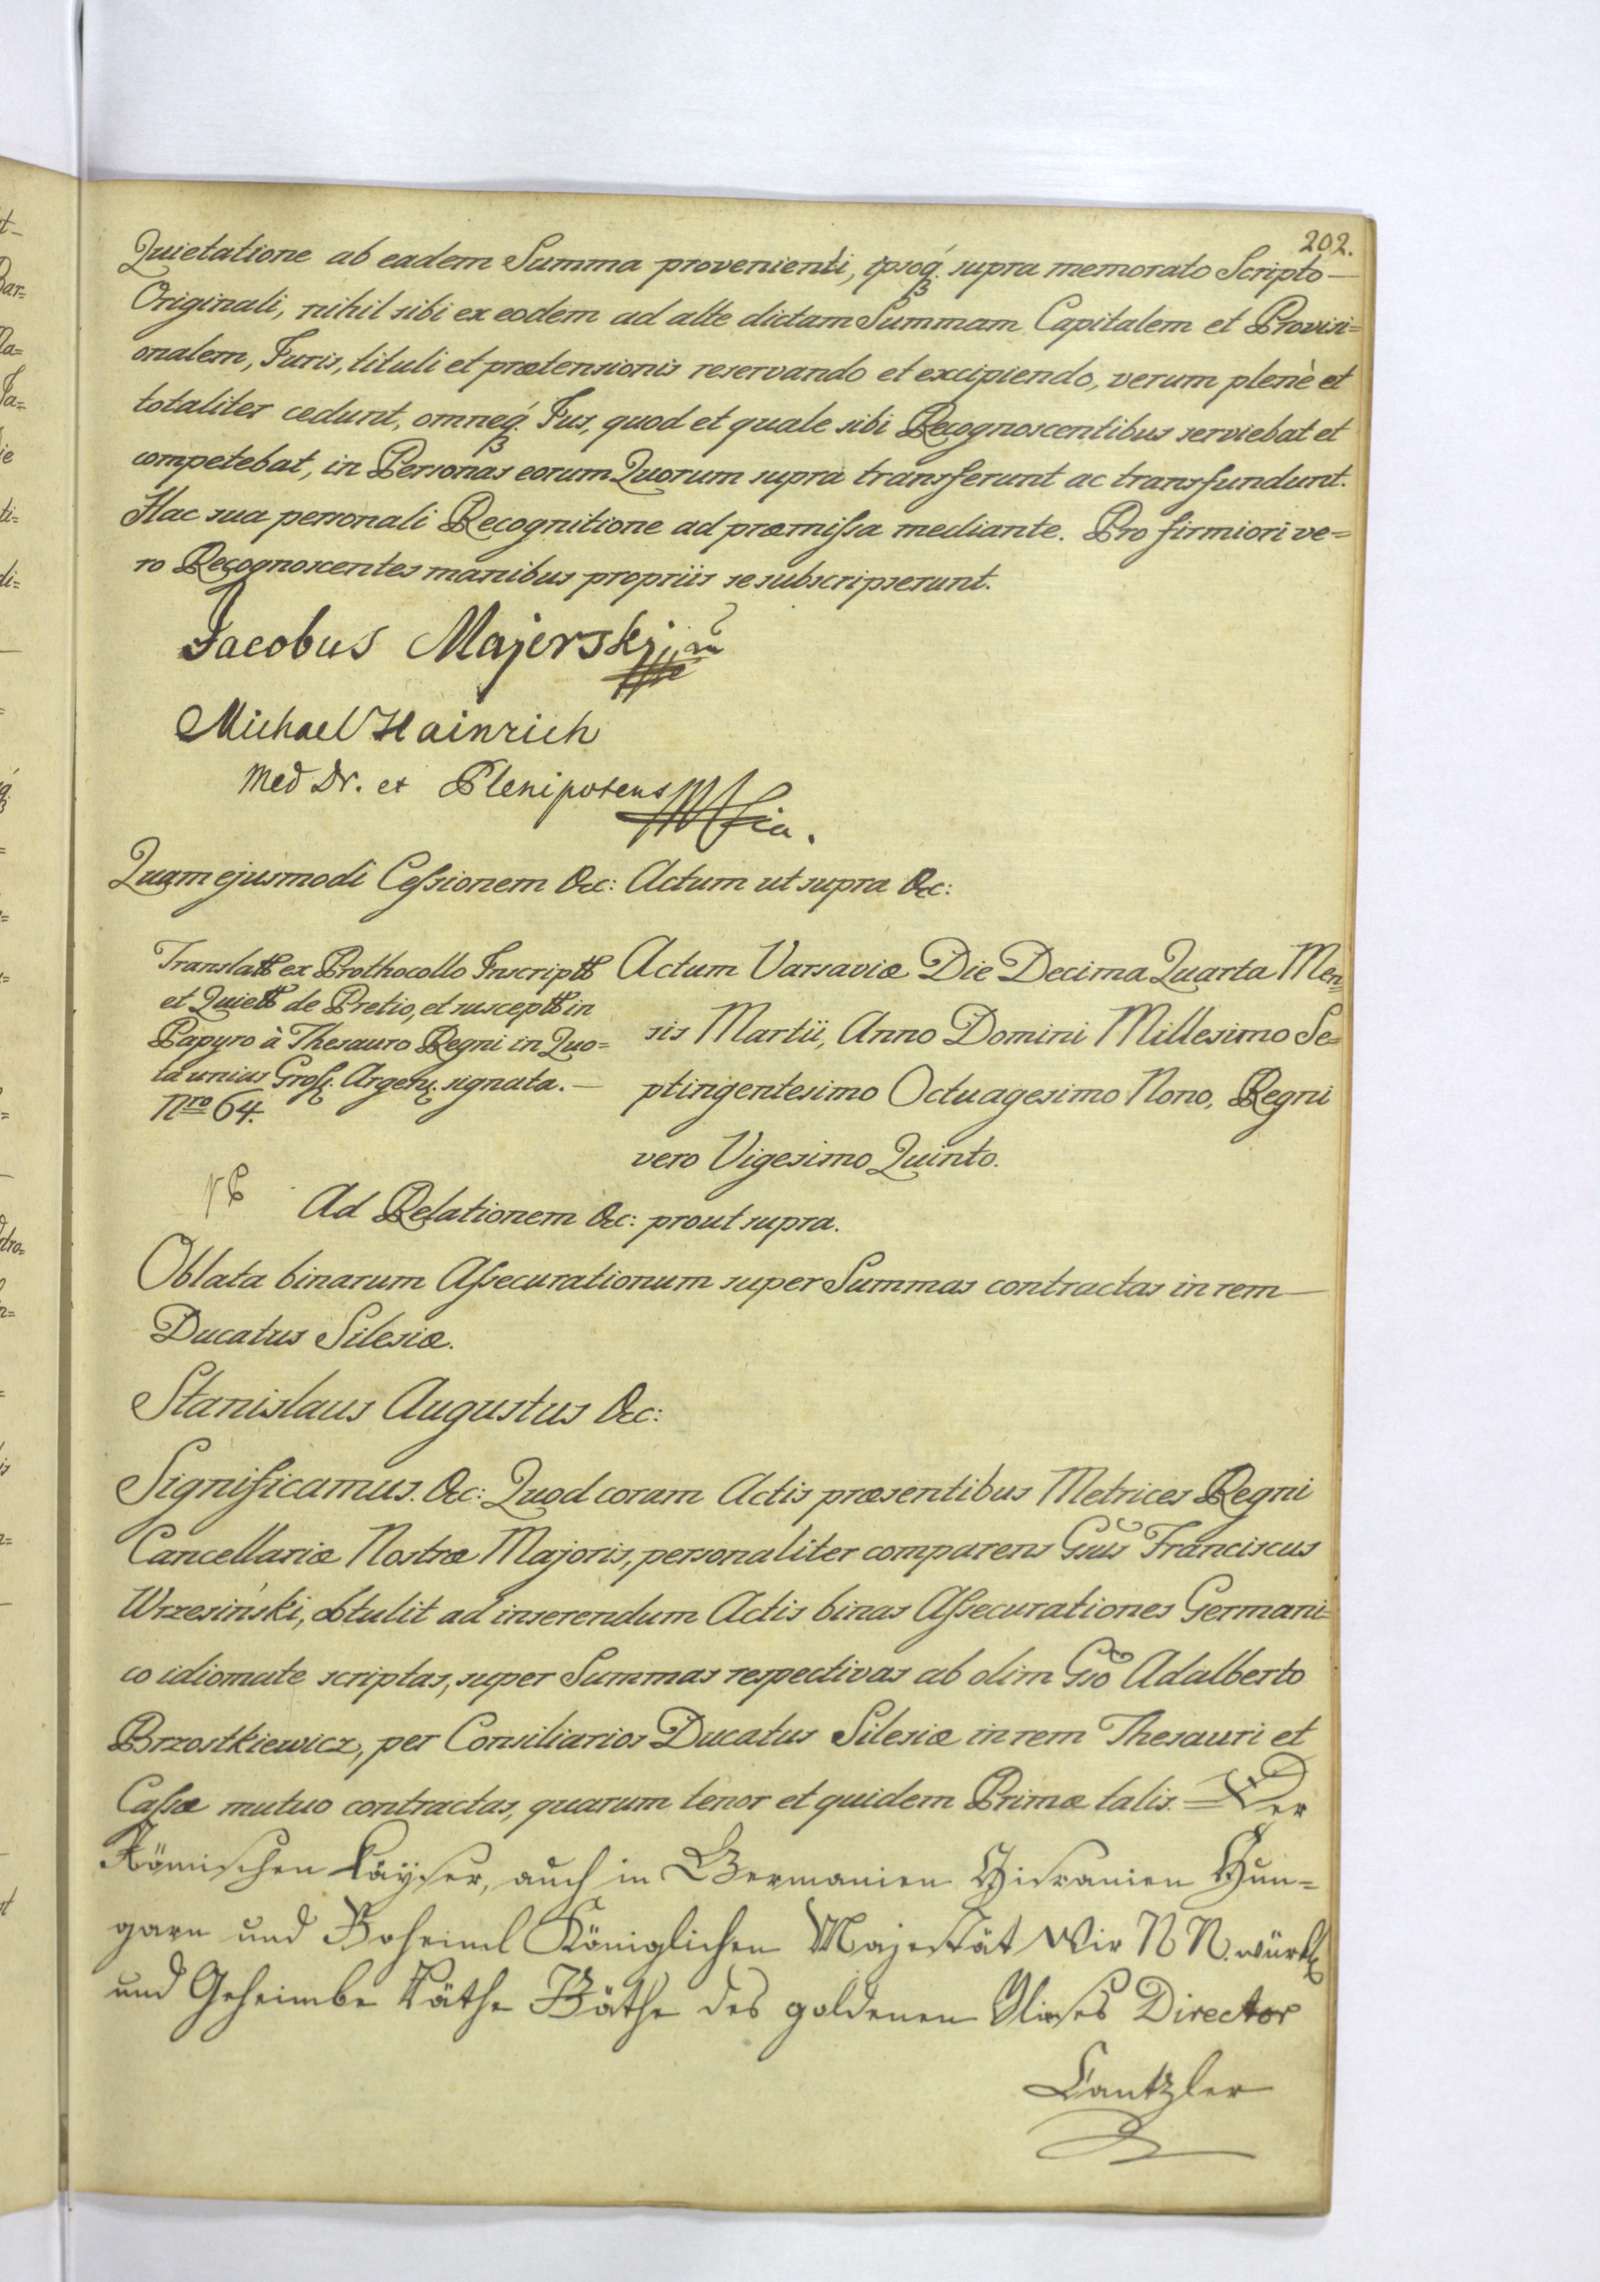 202.
Quietatione ab eadem Summa provenienti, ipsoq́ supra memorato Scripto —
Originali, nihil sibi ex eodem ad alte dictam Summam Capitalem et Provisi=
onalem, Juris, tituli et prætensionis reservando et excipiendo, verum plenè et
totaliter cedunt, omneq́ Jus, quod et quale sibi Recognoscentibus serviebat et
competebat, in Personas eorum Quorum supra transferunt ac transfundunt.
Hac sua personali Recognitione ad præmißa mediante. Pro firmiori ve=
ro Recognoscentes manibus propriis se subscripserunt.
Jacobus Majerski
Michael Hainrich
Med Dr. et Plenipotens
Quam ejusmodi Ceßionem &c: Actum ut supra &c:
Translat ex Prothocollo Inscript
et Quiet de Pretio, et suscept in
Papyro à Thesauro Regni in Quo=
ta unius Groß. Argen. signata. —
Nro 64.
Actum Varsaviæ Die Decima Quarta Men=
sis Martii, Anno Domini Millesimo Se=
ptingentesimo Octuagesimo Nono, Regni
vero Vigesimo Quinto.
Ad Relationem &c: prout supra.
Oblata binarum Aßecurationum super Summas contractas in rem —
Ducatus Silesiæ.
Stanislaus Augustus &c:
Significamus. &c: Quod coram Actis præsentibus Metrices Regni
Cancellariæ Nostræ Majoris, personaliter comparens Gsus Franciscus
Wrzesiński, obtulit ad inserendum Actis binas Aßecurationes Germani=
co idiomate scriptas, super Summas respectivas ab olim Gso Adalberto
Brzostkiewicz, per Consiliarios Ducatus Silesiæ in rem Thesauri et
Caßæ mutuo contractas, quarum tenor et quidem Primæ talis. = Der
Römischen Kayser, auch in Germanien Hispanien Hun=
garn und Boheiml Königlichen Majestät Wir N N. würkl
und Geheimbe Räthe des goldenen Vlißes Director
Cantzler